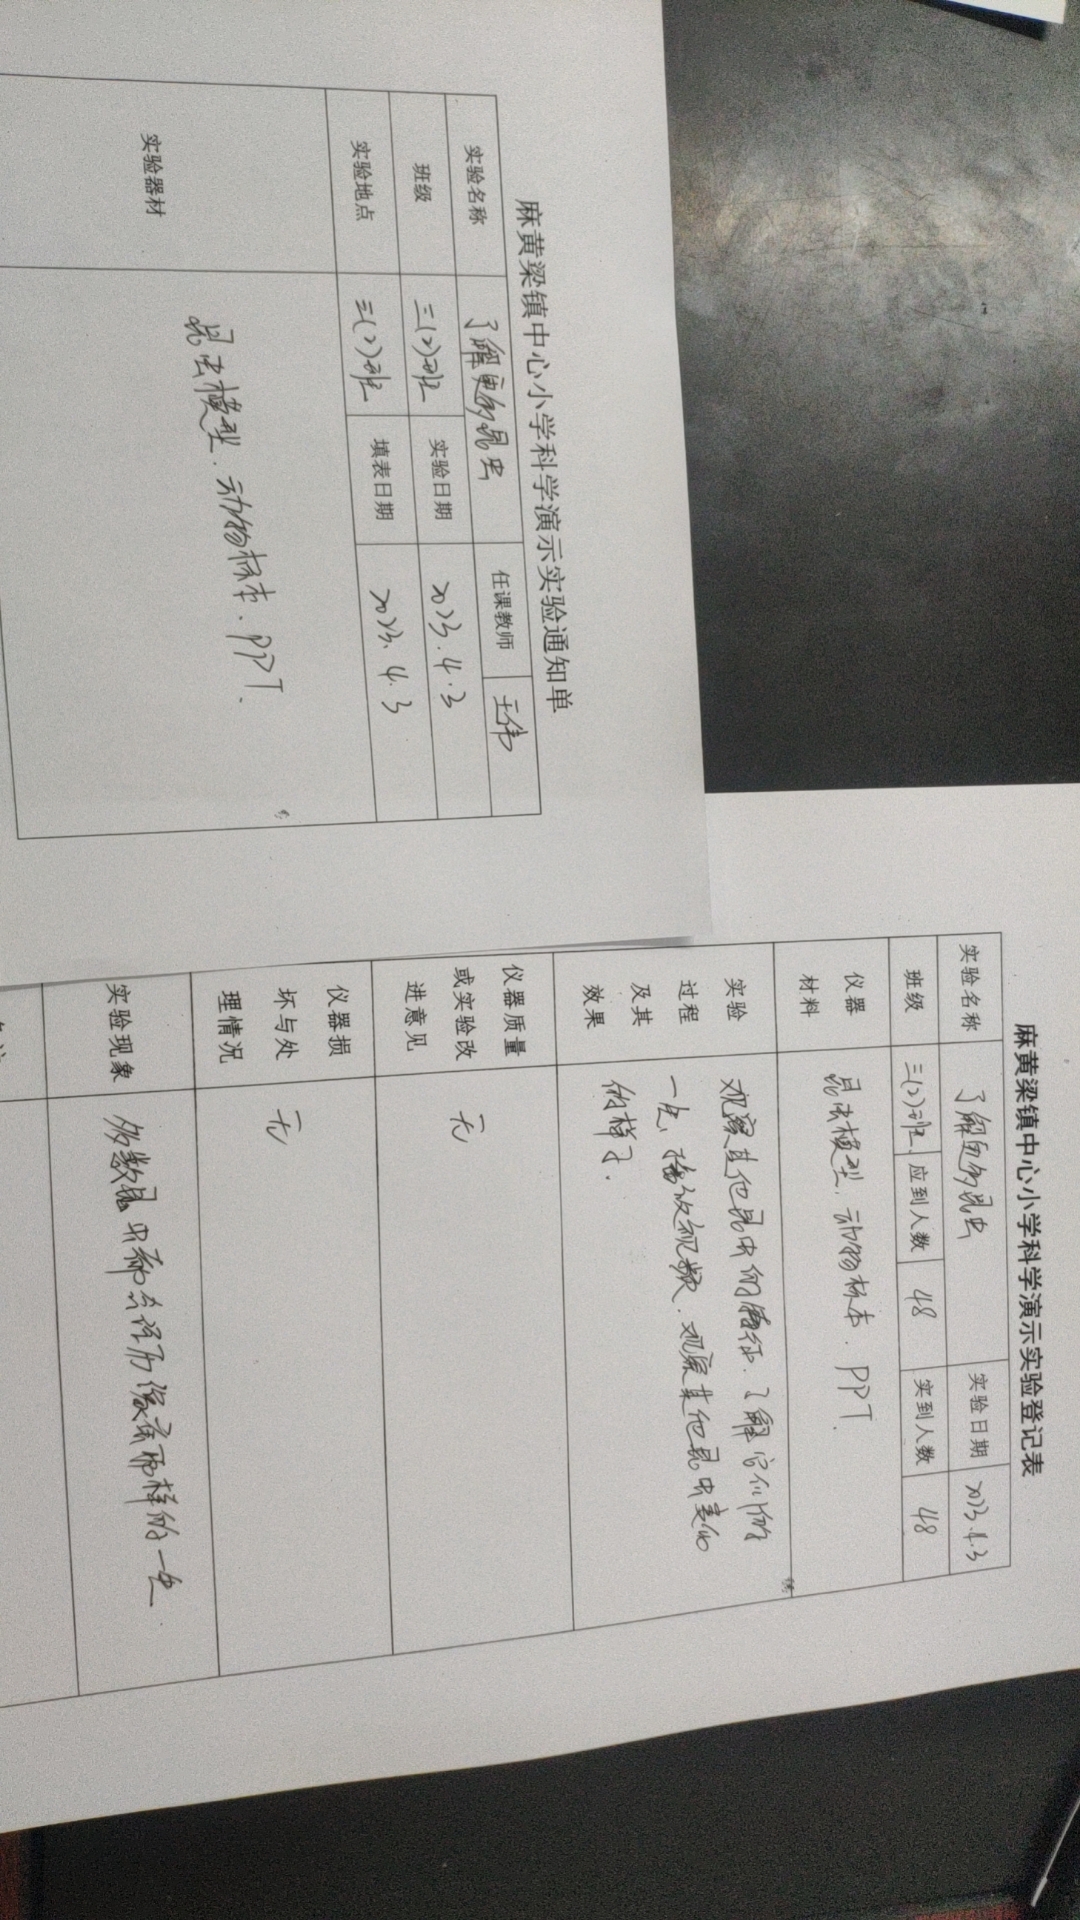 麻黄梁镇中心小学科学演示实验通知单
实验名称 了解更多昆虫 任课教师 王伟
班级 三(2)班 实验日期 2023.4.3
实验地点 三(2)班 填表日期 2023.4.3
实验器材 昆虫模型.动物标本.PPT.
麻黄梁镇中心小学科学演示实验登记表
实验名称 了解更多昆虫 实验日期 2023.4.3
班级 三(2)班 应到人数 48 实到人数 48
仪器
材料
昆虫模型.动物标本.PPT.
实验
过程
及其
效果
观察其他昆虫的特征.了解它们的
一生,播放视频.观察其他昆虫变化
的样子.
仪器质量
或实验改
进意见
无
仪器损
坏与处
理情况
无
实验现象
多数昆虫都会经历像蚕那样的一生